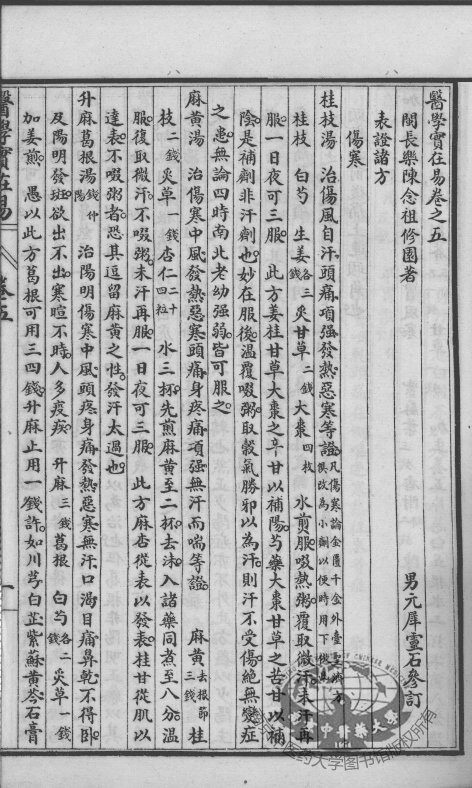 醫學實在易卷之五
閩長樂陳念祖修園著　男元犀靈石參訂
表證諸方
傷寒
桂枝湯　治傷風自汗頭痛項強發熱惡寒等證凡傷寒論金匱千金外臺方俱改為小劑以便時用下倣此
桂枝　白芍　生姜各三錢　炙甘草二錢　大棗四枚　水煎服啜熱粥覆取微汗未汗再
服一日夜可三服　此方姜桂甘草大棗之辛甘以補陽芍藥大棗甘草之苦甘以補
陰是補劑非汗劑也妙在服後溫覆啜粥取穀氣勝邪以為汗則汗不受傷絕無變症
之患無論四時南北老幼強弱皆可服之
麻黃湯　治傷寒中風發熱惡寒頭痛身疼痛項強無汗而喘等證　麻黃去根節三錢　桂
枝二錢　炙草一錢　杏仁二十四粒　水三杯先煎麻黃至二杯去沫入諸藥同煮至八分溫
服復取微汗不啜粥未汗再服一日夜可三服　此方麻杏從表以發表桂甘從肌以
達表不啜粥者恐其逗留麻黃之性發汗太過也
升麻葛根湯錢仲陽　治陽明傷寒中風頭疼身痛發熱惡寒無汗口渴目痛鼻乾不得臥
及陽明發斑欲出不出寒暄不時人多疫疾　升麻三錢　葛根　白芍各二錢　炙草一錢
加姜煎　愚以此方葛根可用三四錢升麻止用一錢許如川芎白芷紫蘇黃芩石膏
醫學實在易
卷五
一